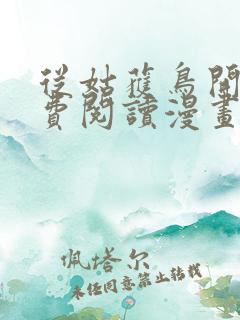 從姑蒦鳥開
費閱讀漫畫
佩塔尔
未经同意禁止转载